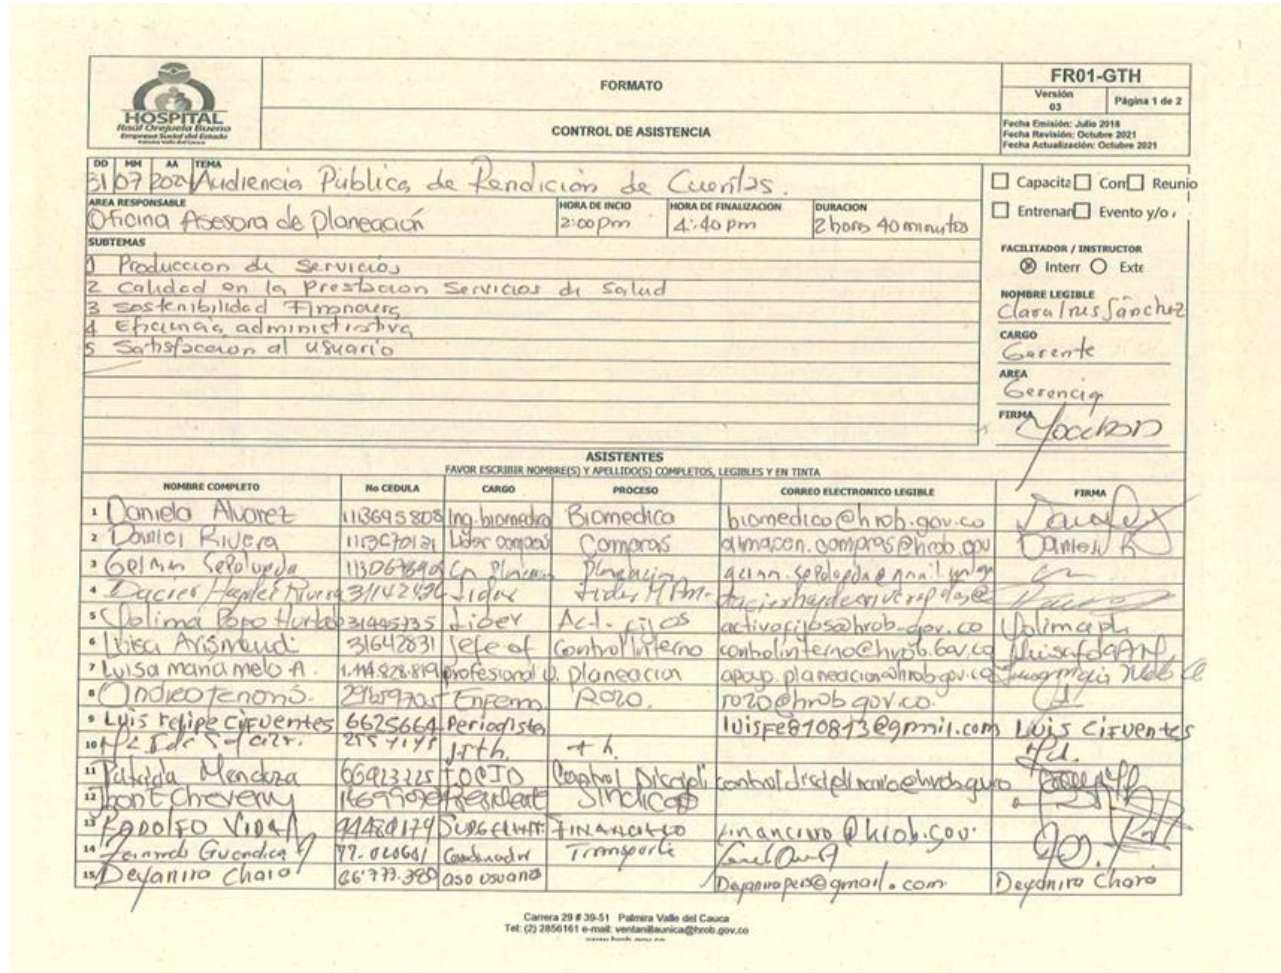 HOSPITAL
Raúl Orejuela Bueno
Empresa Social del Estado
FORMATO
CONTROL DE ASISTENCIA
FR01-GTH
Versión
03
Página 1 de 2
Fecha Emisión: Julio 2018
Fecha Revisión: Octubre 2021
Fecha Actualización: Octubre 2021
DD MM AA TEMA
31 07 Audiencia Pública de Rendición de Cuentas.
AREA RESPONSABLE
Oficina Asesora de Planeación
HORA DE INCIO
2:00 pm
HORA DE FINALIZACION
4:40 pm
DURACION
2 horas 40 minutos
Capacita Con Reunio
Entrenan Evento y/o
SUBTEMAS
1 Produccion de Servicios
2 Calidad en la Prestacion Servicios de Salud
3 Sostenibilidad Financiera
4 Eficiencia administrativa
5 Satisfaccion al usuario
FACILITADOR / INSTRUCTOR
Interr Exte
NOMBRE LEGIBLE
Clara Ines Sánchez
CARGO
Gerente
AREA
Gerencia
FIRMA
ASISTENTES
FAVOR ESCRIBIR NOMBRE(S) Y APELLIDO(S) COMPLETOS, LEGIBLES Y EN TINTA
NOMBRE COMPLETO No CEDULA CARGO PROCESO CORREO ELECTRONICO LEGIBLE FIRMA
1 Daniela Alvarez 113695808 Ing. biomedica Biomedica biomedico@hrob.gov.co
2 Daniel Rivera Lider compras Compras almacen.compras@hrob.gov Daniel R
3 Planeacion
4 31142436 Lider
5 Dolima Popo Hurtado 31445735 Lider Act. fijos activosfijos@hrob.gov.co Dolimaph
6 Luisa Arismendi 31642831 Jefe of Control Interno controlinterno@hrob.gov.co
7 Luisa maria melo A. 1.114.828.819 profesional U. planeacion apoyo.planeacion@hrob.gov.co
8 Enferm Rozo. rozo@hrob.gov.co.
9 Luis Felipe Cifuentes 6625664 Periodista luisfe810813@gmail.com Luis Cifuentes
10 th.
11 Patricia Mendoza 66923225 Control Discipli
12 Sindicato
13 Rodolfo Vidal 94480179 Financiero financiero@hrob.gov.
14 Coordinador Transporte
15 Deyanira Charo 66'777.380 aso usuario Deyanira Charo
Carrera 29 # 39-51 Palmira Valle del Cauca
Tel: (2) 2856161 e-mail: ventanillaunica@hrob.gov.co